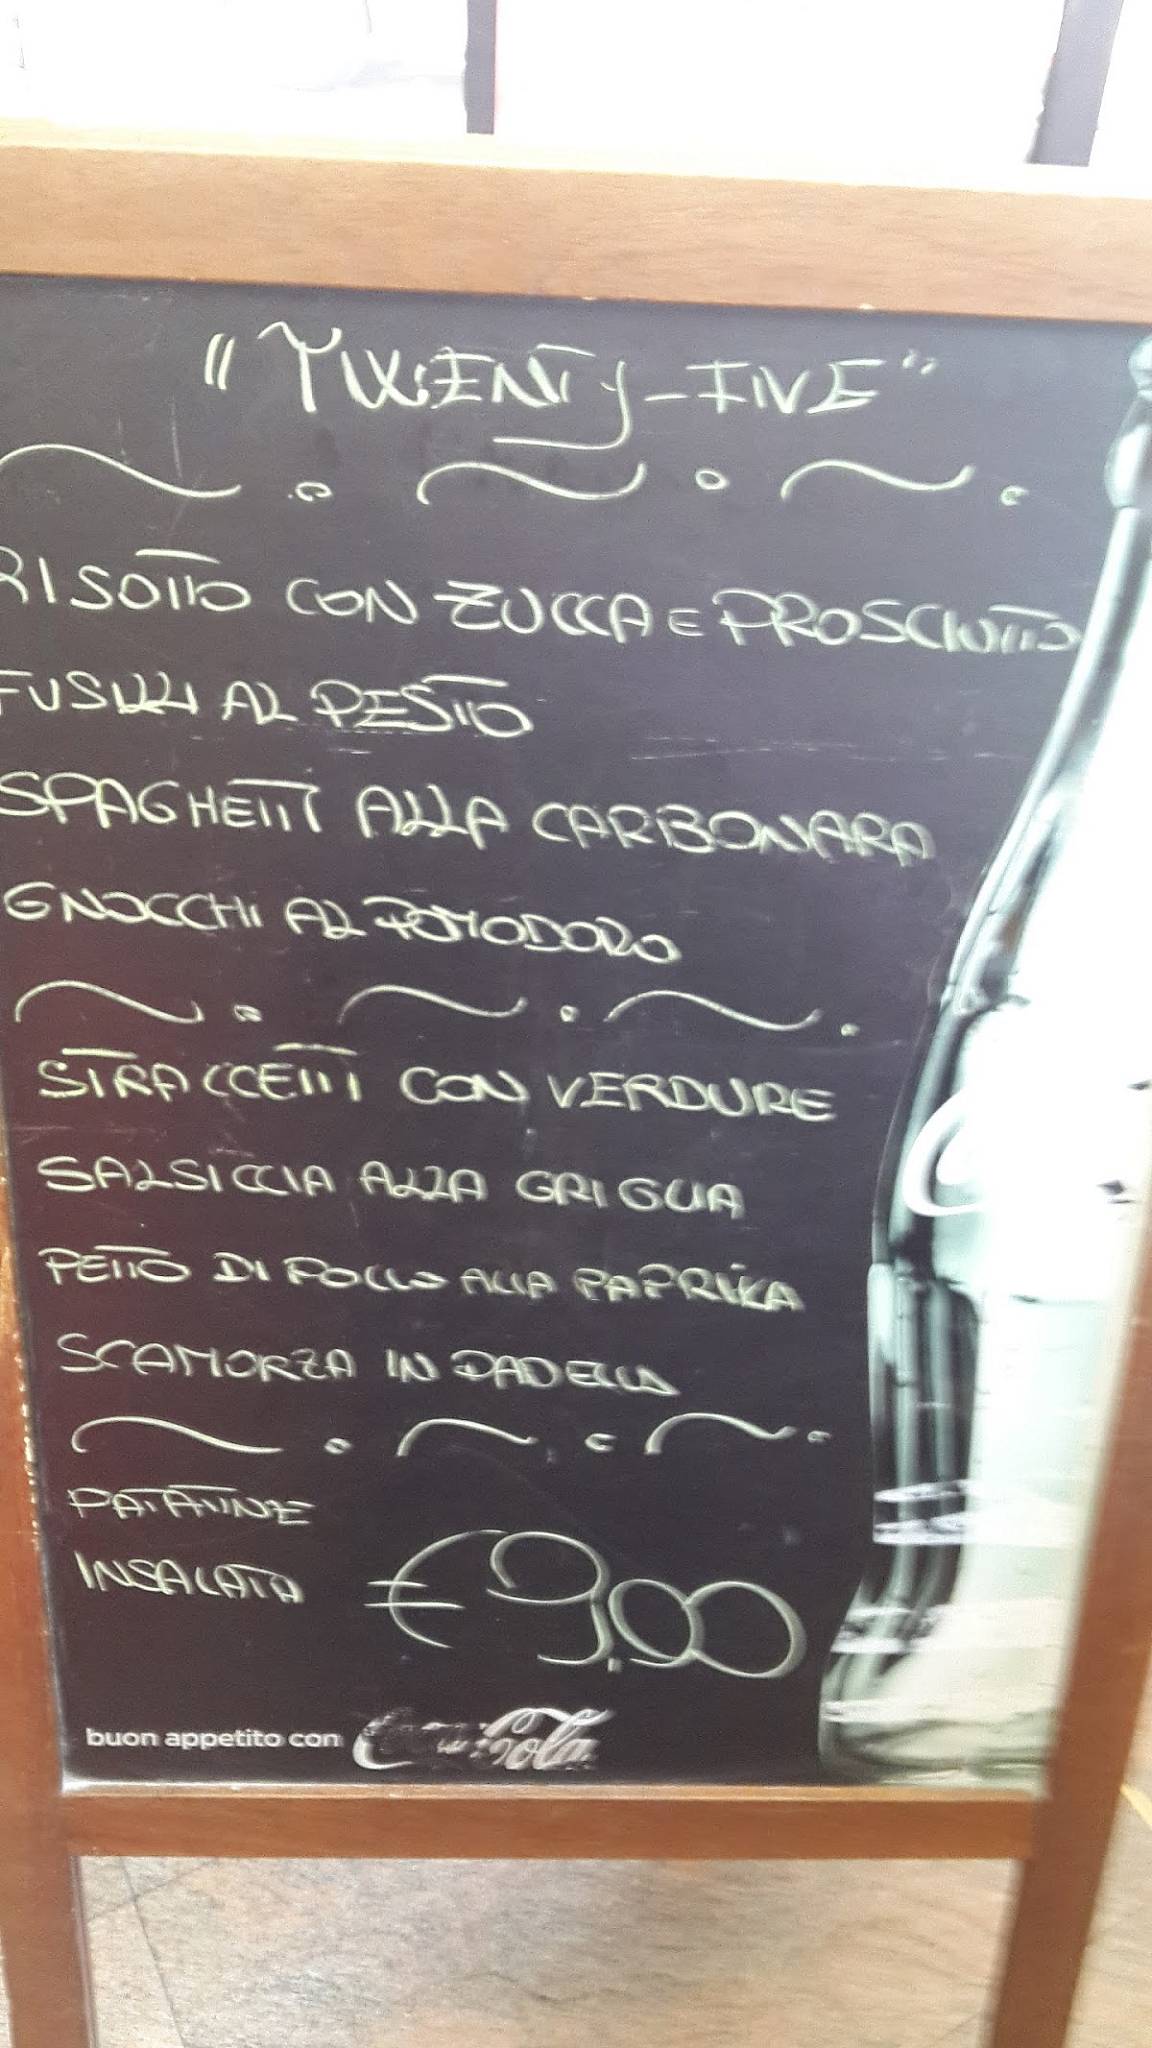 "TWENTY-FIVE"
RISOTTO CON ZUCCA E PROSCIUTTO
FUSILLI AL PESTO
SPAGHETTI ALLA CARBONARA
GNOCCHI AL POMODORO
STRACCETTI CON VERDURE
SALSICCIA ALLA GRIGLIA
PETTO DI POLLO ALLA PAPRIKA
SCAMORZA IN PADELLA
PATATINE
INSALATA
€9,00
buon appetito con Coca-Cola